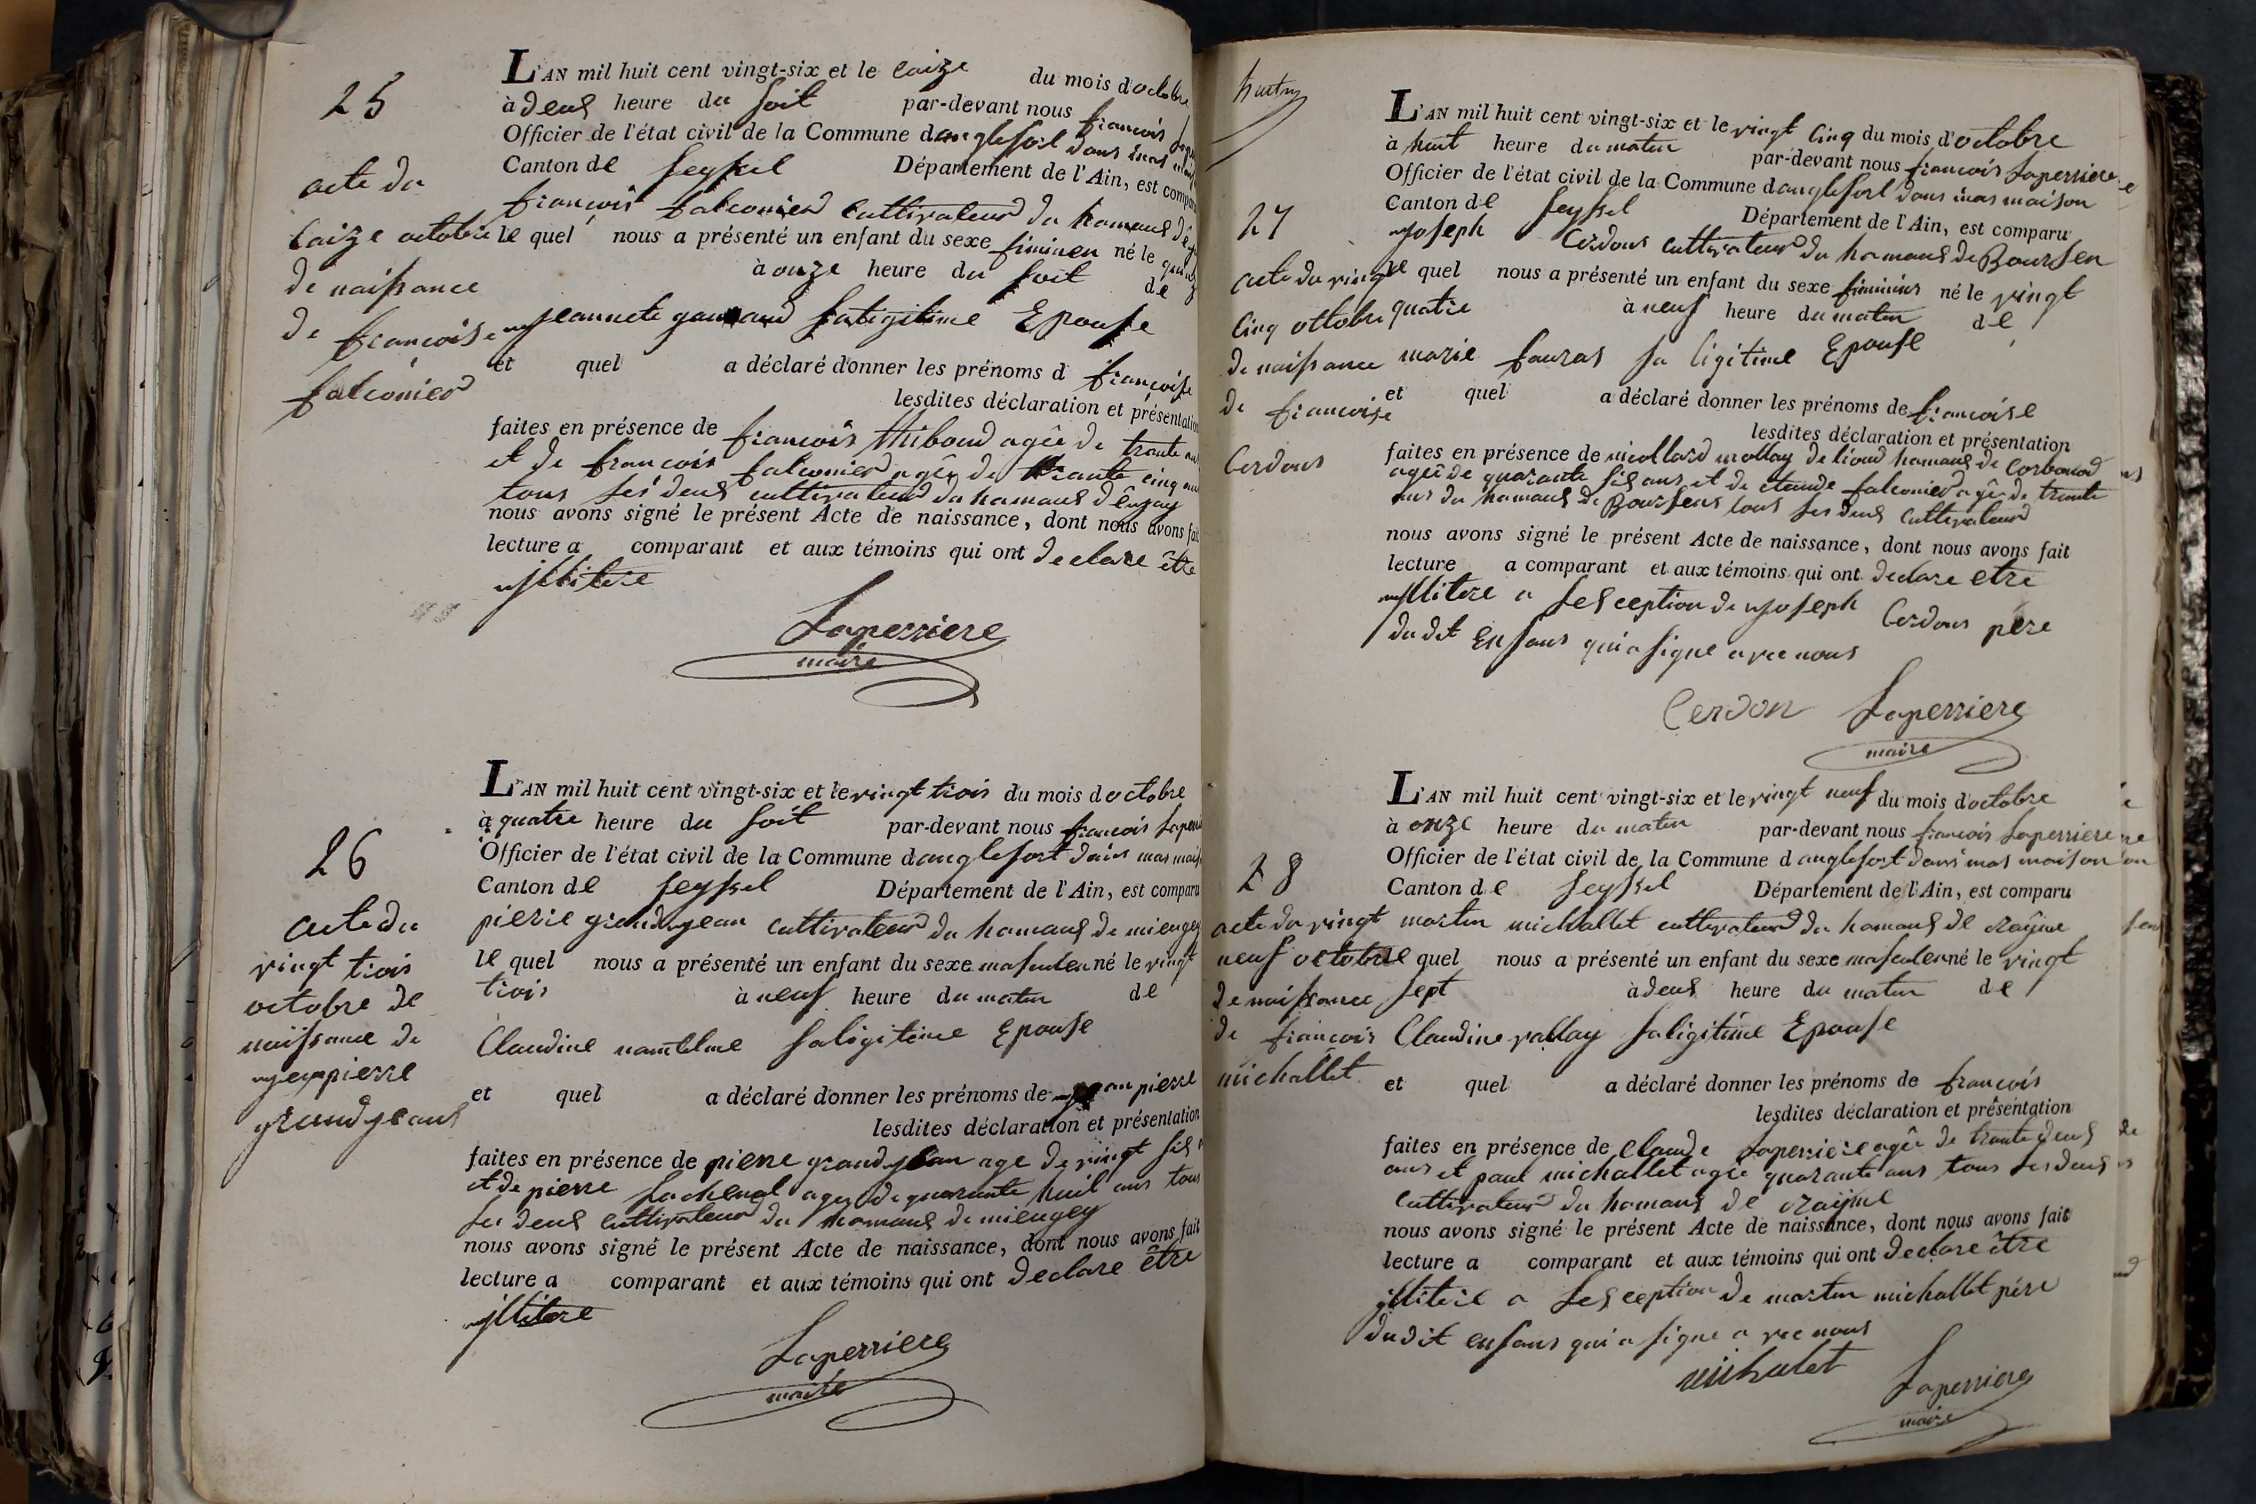 25
acte du
saize octobre
de naissance
de francoise
falconier
L'AN mil huit cent vingt-six et le saize du mois d'octobre
à deus heure du soit par-devant nous francois
Officier de l'état civil de la Commune danglefort dans mas
Canton de Seyssel Département de l'Ain, est comparu
francois falconier cultivateur du hamaus
le quel nous a présenté un enfant du sexe fiminen né le quinz
à onze heure du soit de
jeannete saligitime Epouse
et quel a déclaré donner les prénoms d francoise
lesdites déclaration et présentation
faites en présence de francois thiboud agée de trante ans
et de francois falconier agée de trante cinq ans
tous ses deus cultivateur du hamaus
nous avons signé le présent Acte de naissance, dont nous avons fait
lecture a comparant et aux témoins qui ont declare être
jllitere
Laperriere
maire
26
acte du
vingt trois
octobre de
naissance de
jean pierre
grandjeans
L'AN mil huit cent vingt-six et le vingt trois du mois doctobre
à quatre heure du soit par-devant nous francois Laperri
Officier de l'état civil de la Commune danglefort dans mas mais
Canton de Seyssel Département de l'Ain, est comparu
pierre grandjean cultivateur du hamaus de miengey
le quel nous a présenté un enfant du sexe masculen né le vingt
trois à neuf heure du matin de
Claudine saligitime Epouse
et quel a déclaré donner les prénoms de jean pierre
lesdites déclaration et présentation
faites en présence de pierre grandjean age de vingt sis
et de pierre Lachenal agez de quarante huil ans tous
ses deus cultivateur du hamaus de miengey
nous avons signé le présent Acte de naissance, dont nous avons fait
lecture a comparant et aux témoins qui ont declare être
jllitere
Laperriere
maire
27
acte du vingt
cinq octobre
de naissance
de francoise
Cerdons
L'AN mil huit cent vingt-six et le vingt cinq du mois d'octobre
à huit heure du matin par-devant nous francois Laperriere
Officier de l'état civil de la Commune danglefort dans mas maison
Canton de Seyssel Département de l'Ain, est comparu
joseph Cerdons cultivateur du hamaus de Boursen
le quel nous a présenté un enfant du sexe fiminins né le vingt
quatre à neuf heure du matin de
marie fauras sa ligitime Epouse
et quel a déclaré donner les prénoms de francoise
lesdites déclaration et présentation
faites en présence de miollard mollay de lioud hamaus de Corbonod
agée de quarante sis ans et de claude falconier agée de trante
ans du hamaus de Boursens tous ses deus cultivateur
nous avons signé le présent Acte de naissance, dont nous avons fait
lecture a comparant et aux témoins qui ont declare etre
jllitere a sesception de joseph Cerdons père
du dit Ensans qui a signe avec nous
Cerdon Laperriere
maire
28
acte du vingt
neuf octobre
de naissance
de francois
michallet
L'AN mil huit cent vingt-six et le vingt neuf du mois d'octobre
à onze heure du matin par-devant nous francois Laperriere
Officier de l'état civil de la Commune danglefort dans mas maison
Canton de Seyssel Département de l'Ain, est comparu
martin michallet cultivateur du hamaus de
le quel nous a présenté un enfant du sexe masculen né le vingt
sept à deus heure du matin de
Claudine vallay saligitime Epouse
et quel a déclaré donner les prénoms de francois
lesdites déclaration et présentation
faites en présence de claude Laperriere agée de trante deus
ans et paul michallet agée quarante ans tous ses deus
cultivateur du hamaus de
nous avons signé le présent Acte de naissance, dont nous avons fait
lecture a comparant et aux témoins qui ont declare être
jllitere a sesception de martin michallet pére
du dit ensans qui a signe avec nous
michalet Laperriere
maire